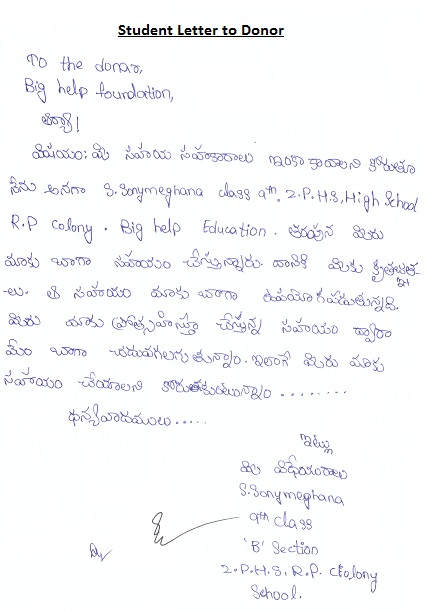 Student Letter to Donor
To the donar,
Big help foundation,
ఆర్యా!
విషయం: మీ సహాయ సహకారాలు ఇంకా కావాలని కోరుతూ
నేను అనగా S.Sonymeghana class 9th. Z.P.H.S, High School
R.P Colony. Big help Education. తరుపున మీరు
మాకు బాగా సహాయం చేస్తున్నారు. దానికి మీకు కృతజ్ఞత-
-లు. ఈ సహాయం మాకు బాగా ఉపయోగపడుతున్నది.
మీరు మాకు ప్రోత్సహిస్తూ చేస్తున్న సహాయం ద్వారా
మేం బాగా చదువగలుగుతున్నాం. ఇలాగే మీరు మాకు
సహాయం చేయాలని కోరుతకుంటున్నాం ........
ధన్యవాదములు.....
ఇట్లు
మీ విధేయురాలు
S.Sonymeghana
9th class
'B' Section
Z.P.H.S. R.P. Colony
School.